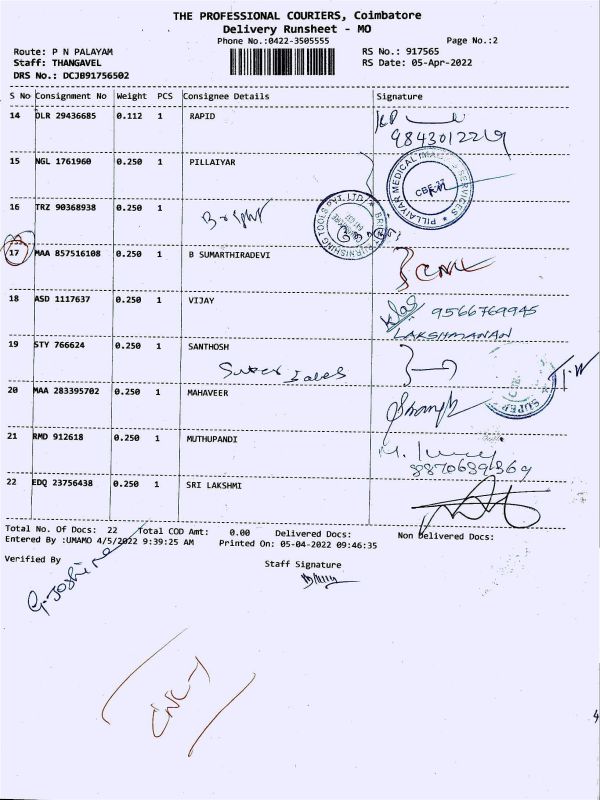 THE PROFESSIONAL COURIERS, Coimbatore
Delivery Runsheet - MO
Phone No.:0422-3505555
Page No.:2
Route: P N PALAYAM
RS No.: 917565
Staff: THANGAVEL
RS Date: 05-Apr-2022
DRS No.: DCJB91756502
S No Consignment No Weight PCS Consignee Details Signature
14 DLR 29436685 0.112 1 RAPID
9843012219
15 NGL 1761960 0.250 1 PILLAIYAR
PILLAIYAR MEDICAL SERVICES
CBE
16 TRZ 90368938 0.250 1
Bright
TOOLS PVT. LTD.
17 MAA 857516108 0.250 1 B SUMARTHIRADEVI
18 ASD 1117637 0.250 1 VIJAY
9566769945
LAKSHMANAN
19 STY 766624 0.250 1 SANTHOSH
Super Sales
SUPER
20 MAA 283395702 0.250 1 MAHAVEER
21 RMD 912618 0.250 1 MUTHUPANDI
8870689369
22 EDQ 23756438 0.250 1 SRI LAKSHMI
Total No. Of Docs: 22 Total COD Amt: 0.00 Delivered Docs: Non Delivered Docs:
Entered By :UMAMO 4/5/2022 9:39:25 AM Printed On: 05-04-2022 09:46:35
Verified By
Staff Signature